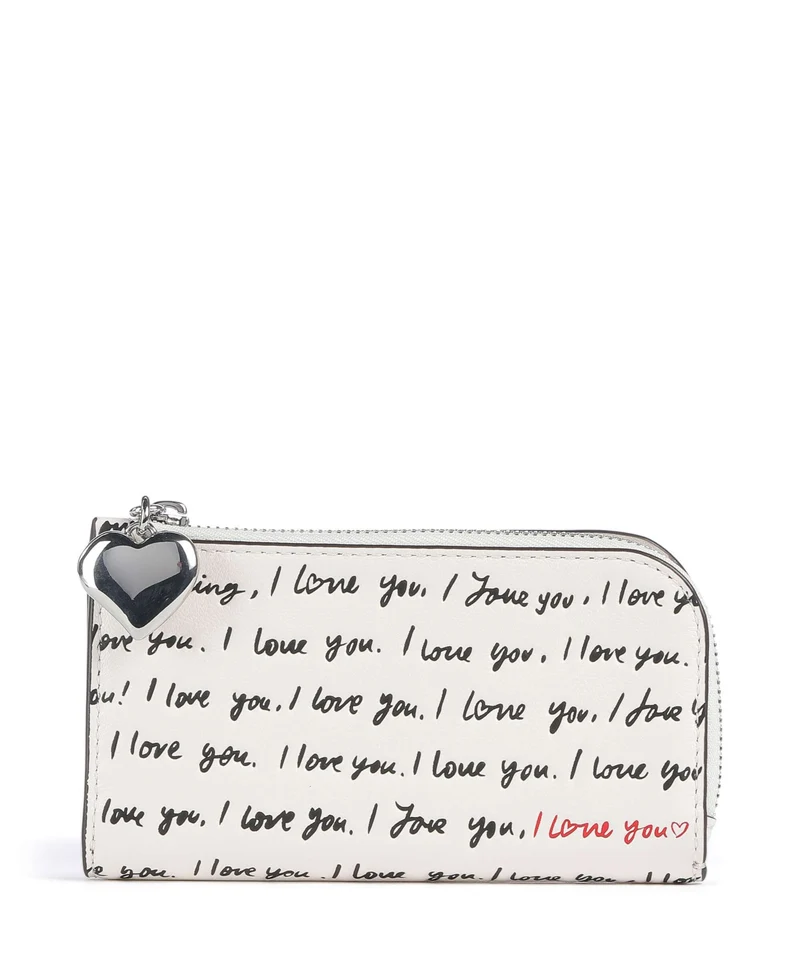 ing, I love you. I love you. I love y
love you. I love you. I love you. I love you.
ou! I love you. I love you. I love you. I love y
I love you. I love you. I love you. I love you
love you. I love you. I love you, I love you♡
e you. I love you. I love you. I love you. I lov